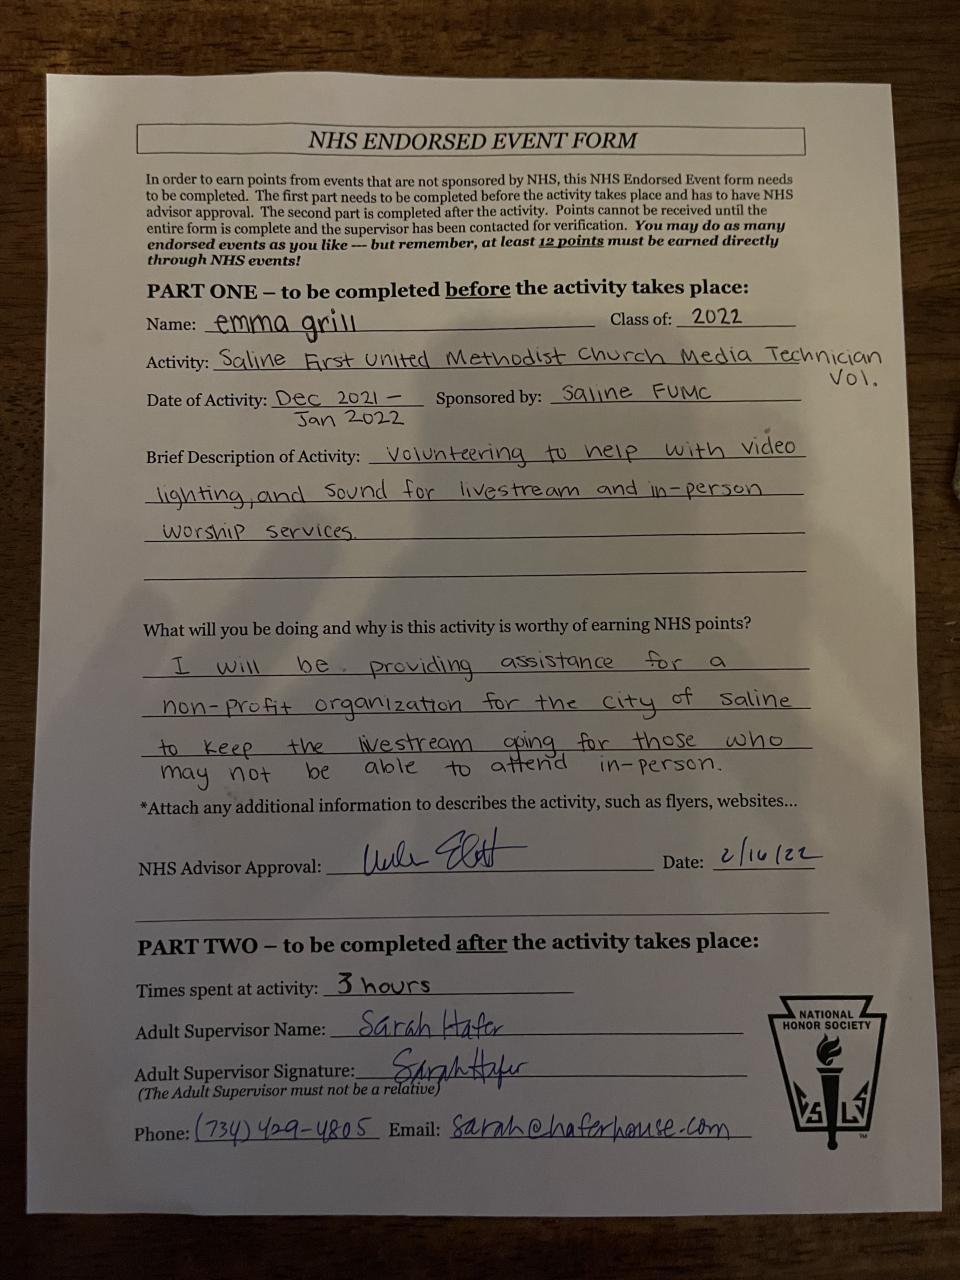 NHS ENDORSED EVENT FORM
In order to earn points from events that are not sponsored by NHS, this NHS Endorsed Event form needs
to be completed. The first part needs to be completed before the activity takes place and has to have NHS
advisor approval. The second part is completed after the activity. Points cannot be received until the
entire form is complete and the supervisor has been contacted for verification. You may do as many
endorsed events as you like --- but remember, at least 12 points must be earned directly
through NHS events!
PART ONE – to be completed before the activity takes place:
Name: emma grill Class of: 2022
Activity: Saline First United Methodist Church Media Technician
Vol.
Date of Activity: Dec 2021 – Sponsored by: Saline FUMC
Jan 2022
Brief Description of Activity: Volunteering to help with video
lighting, and sound for livestream and in-person
worship services.
What will you be doing and why is this activity is worthy of earning NHS points?
I will be providing assistance for a
non-profit organization for the city of saline
to keep the livestream going for those who
may not be able to attend in-person.
*Attach any additional information to describes the activity, such as flyers, websites...
NHS Advisor Approval: Date: 2/16/22
PART TWO – to be completed after the activity takes place:
Times spent at activity: 3 hours
Adult Supervisor Name: Sarah Hafer
Adult Supervisor Signature: Sarah Hafer
(The Adult Supervisor must not be a relative)
Phone: (734) 429-4805 Email: sarah@haferhouse.com
NATIONAL
HONOR SOCIETY
C S L S
TM